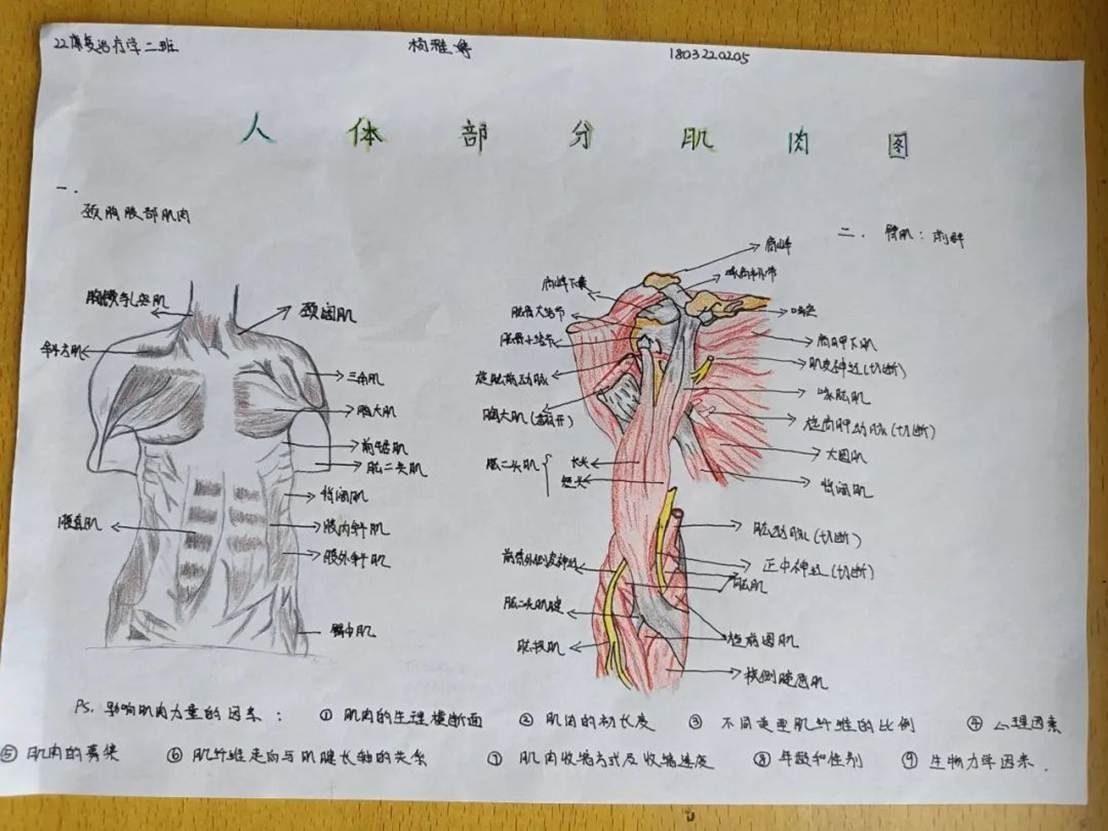 22康复治疗学二班
1803220205
人体部分肌肉图
一.
颈胸腹部肌肉
二. 臂肌：前群
胸锁乳突肌
颈阔肌
斜方肌
三角肌
胸大肌
前锯肌
肱二头肌
背阔肌
腹直肌
腹内斜肌
腹外斜肌
肩峰
肩峰下囊
喙肩韧带
肱骨大结节
喙突
肱骨小结节
肩胛下肌
肌皮神经(切断)
旋肱前动脉
喙肱肌
胸大肌(翻开)
旋肩胛动脉(切断)
大圆肌
肱二头肌
长头
短头
背阔肌
肱动脉(切断)
前臂外侧皮神经
正中神经(切断)
肱肌
肱二头肌腱
旋前圆肌
肱桡肌
桡侧腕屈肌
Ps. 影响肌肉力量的因素： ① 肌肉的生理横断面 ② 肌肉的初长度 ③ 不同类型肌纤维的比例 ④ 心理因素
⑤ 肌肉的募集 ⑥ 肌纤维走向与肌腱长轴的关系 ⑦ 肌肉收缩方式及收缩速度 ⑧ 年龄和性别 ⑨ 生物力学因素.